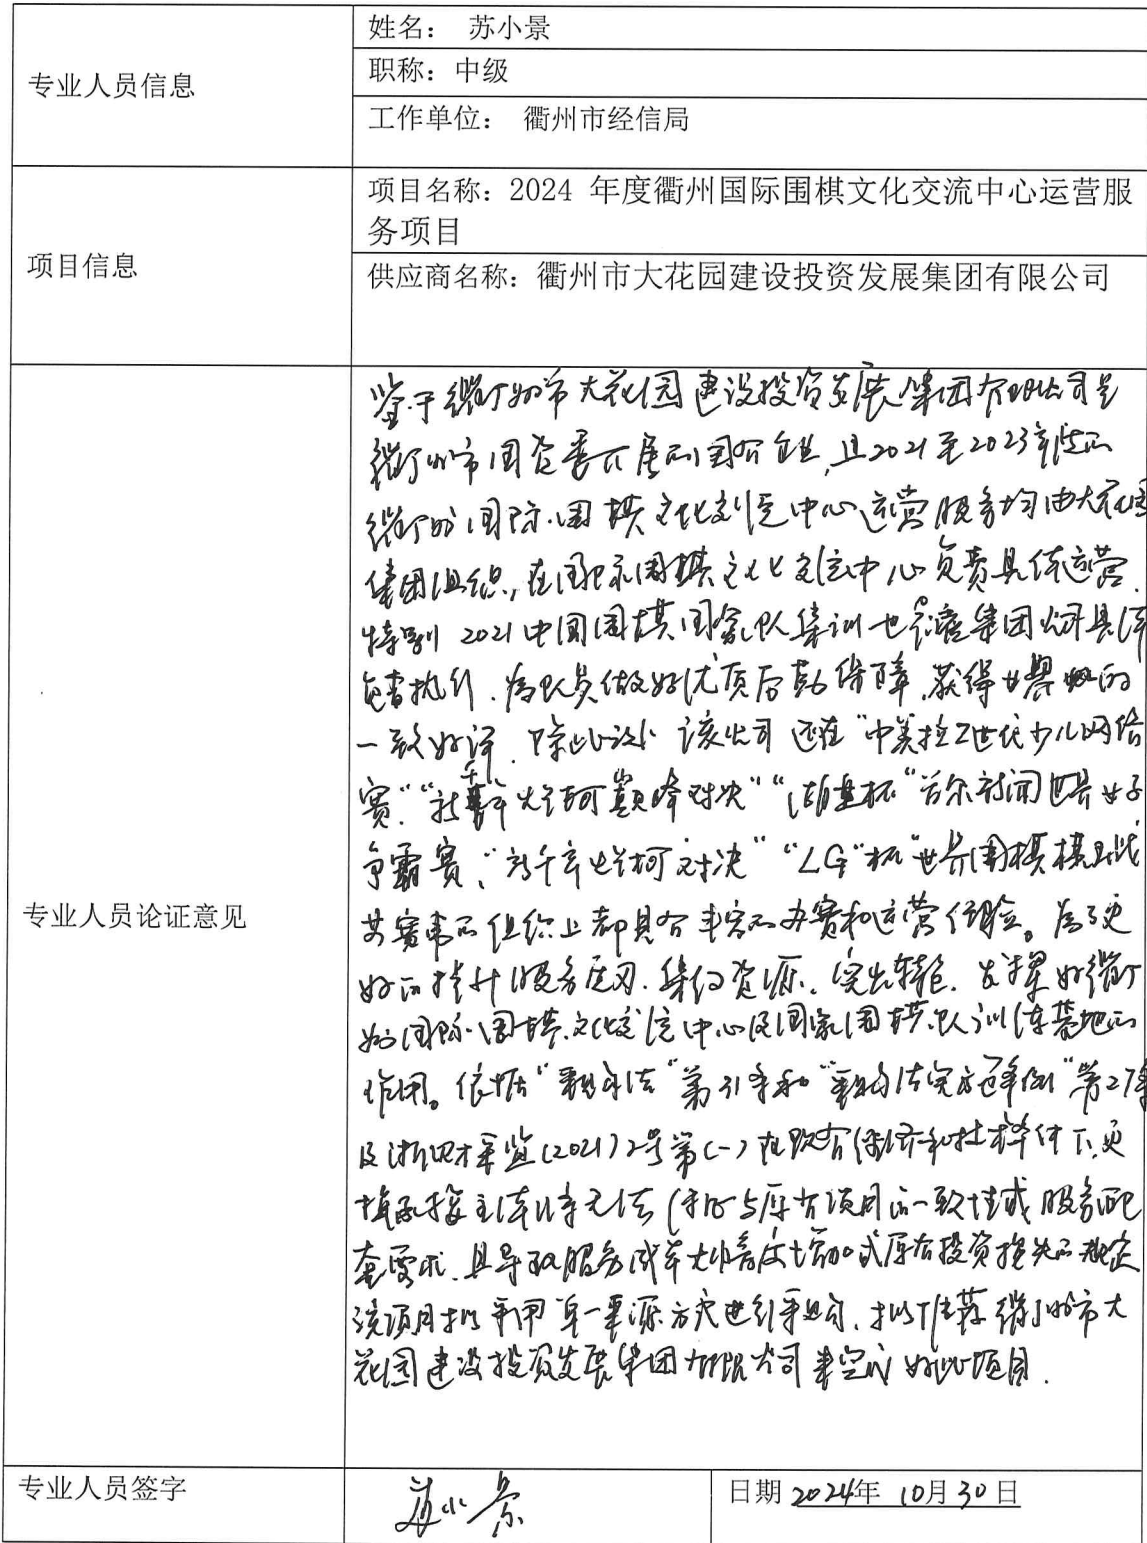 专业人员信息
姓名： 苏小景
职称：中级
工作单位： 衢州市经信局
项目信息
项目名称：2024 年度衢州国际围棋文化交流中心运营服
务项目
供应商名称：衢州市大花园建设投资发展集团有限公司
专业人员论证意见
鉴于衢州市大花园建设投资发展集团有限公司是
衢州市国资委下属的国有企业，且2021至2023年度的
衢州国际围棋文化交流中心运营服务均由大花园
集团组织，在国际围棋文化交流中心负责具体运营.
特别 2021中国围棋国家队集训也 集团公司具体
负责执行.为队员做好优质后勤保障,获得 的
一致好评.除此以外 该公司还在“中美拉 世代少儿网络
赛”“新千年烂柯巅峰对决”“ 杯”首尔新闻世界女子
争霸赛、“新千年烂柯对决”“LG”杯”世界围棋棋王战
其赛事的组织上都具有丰富的办赛和运营经验。为了更
好的提升服务 .集约资源.突出特色.发挥好衢
州国际围棋文化交流中心及国家围棋队训练基地的
作用。依据“采购法”第31条和“采购法实施条例”第27条
及浙财采监(2021)2号第(一) 在现有经济和技术条件下,更
换承接主体将无法保证与原有项目的一致性或服务配
套要求.且导致服务成本大幅度增加或原有投资损失的规定
该项目拟采用单一来源方式进行采购.拟推荐衢州市大
花园建设投资发展集团有限公司来完成好此项目.
专业人员签字
苏小景
日期 2024年 10月30日